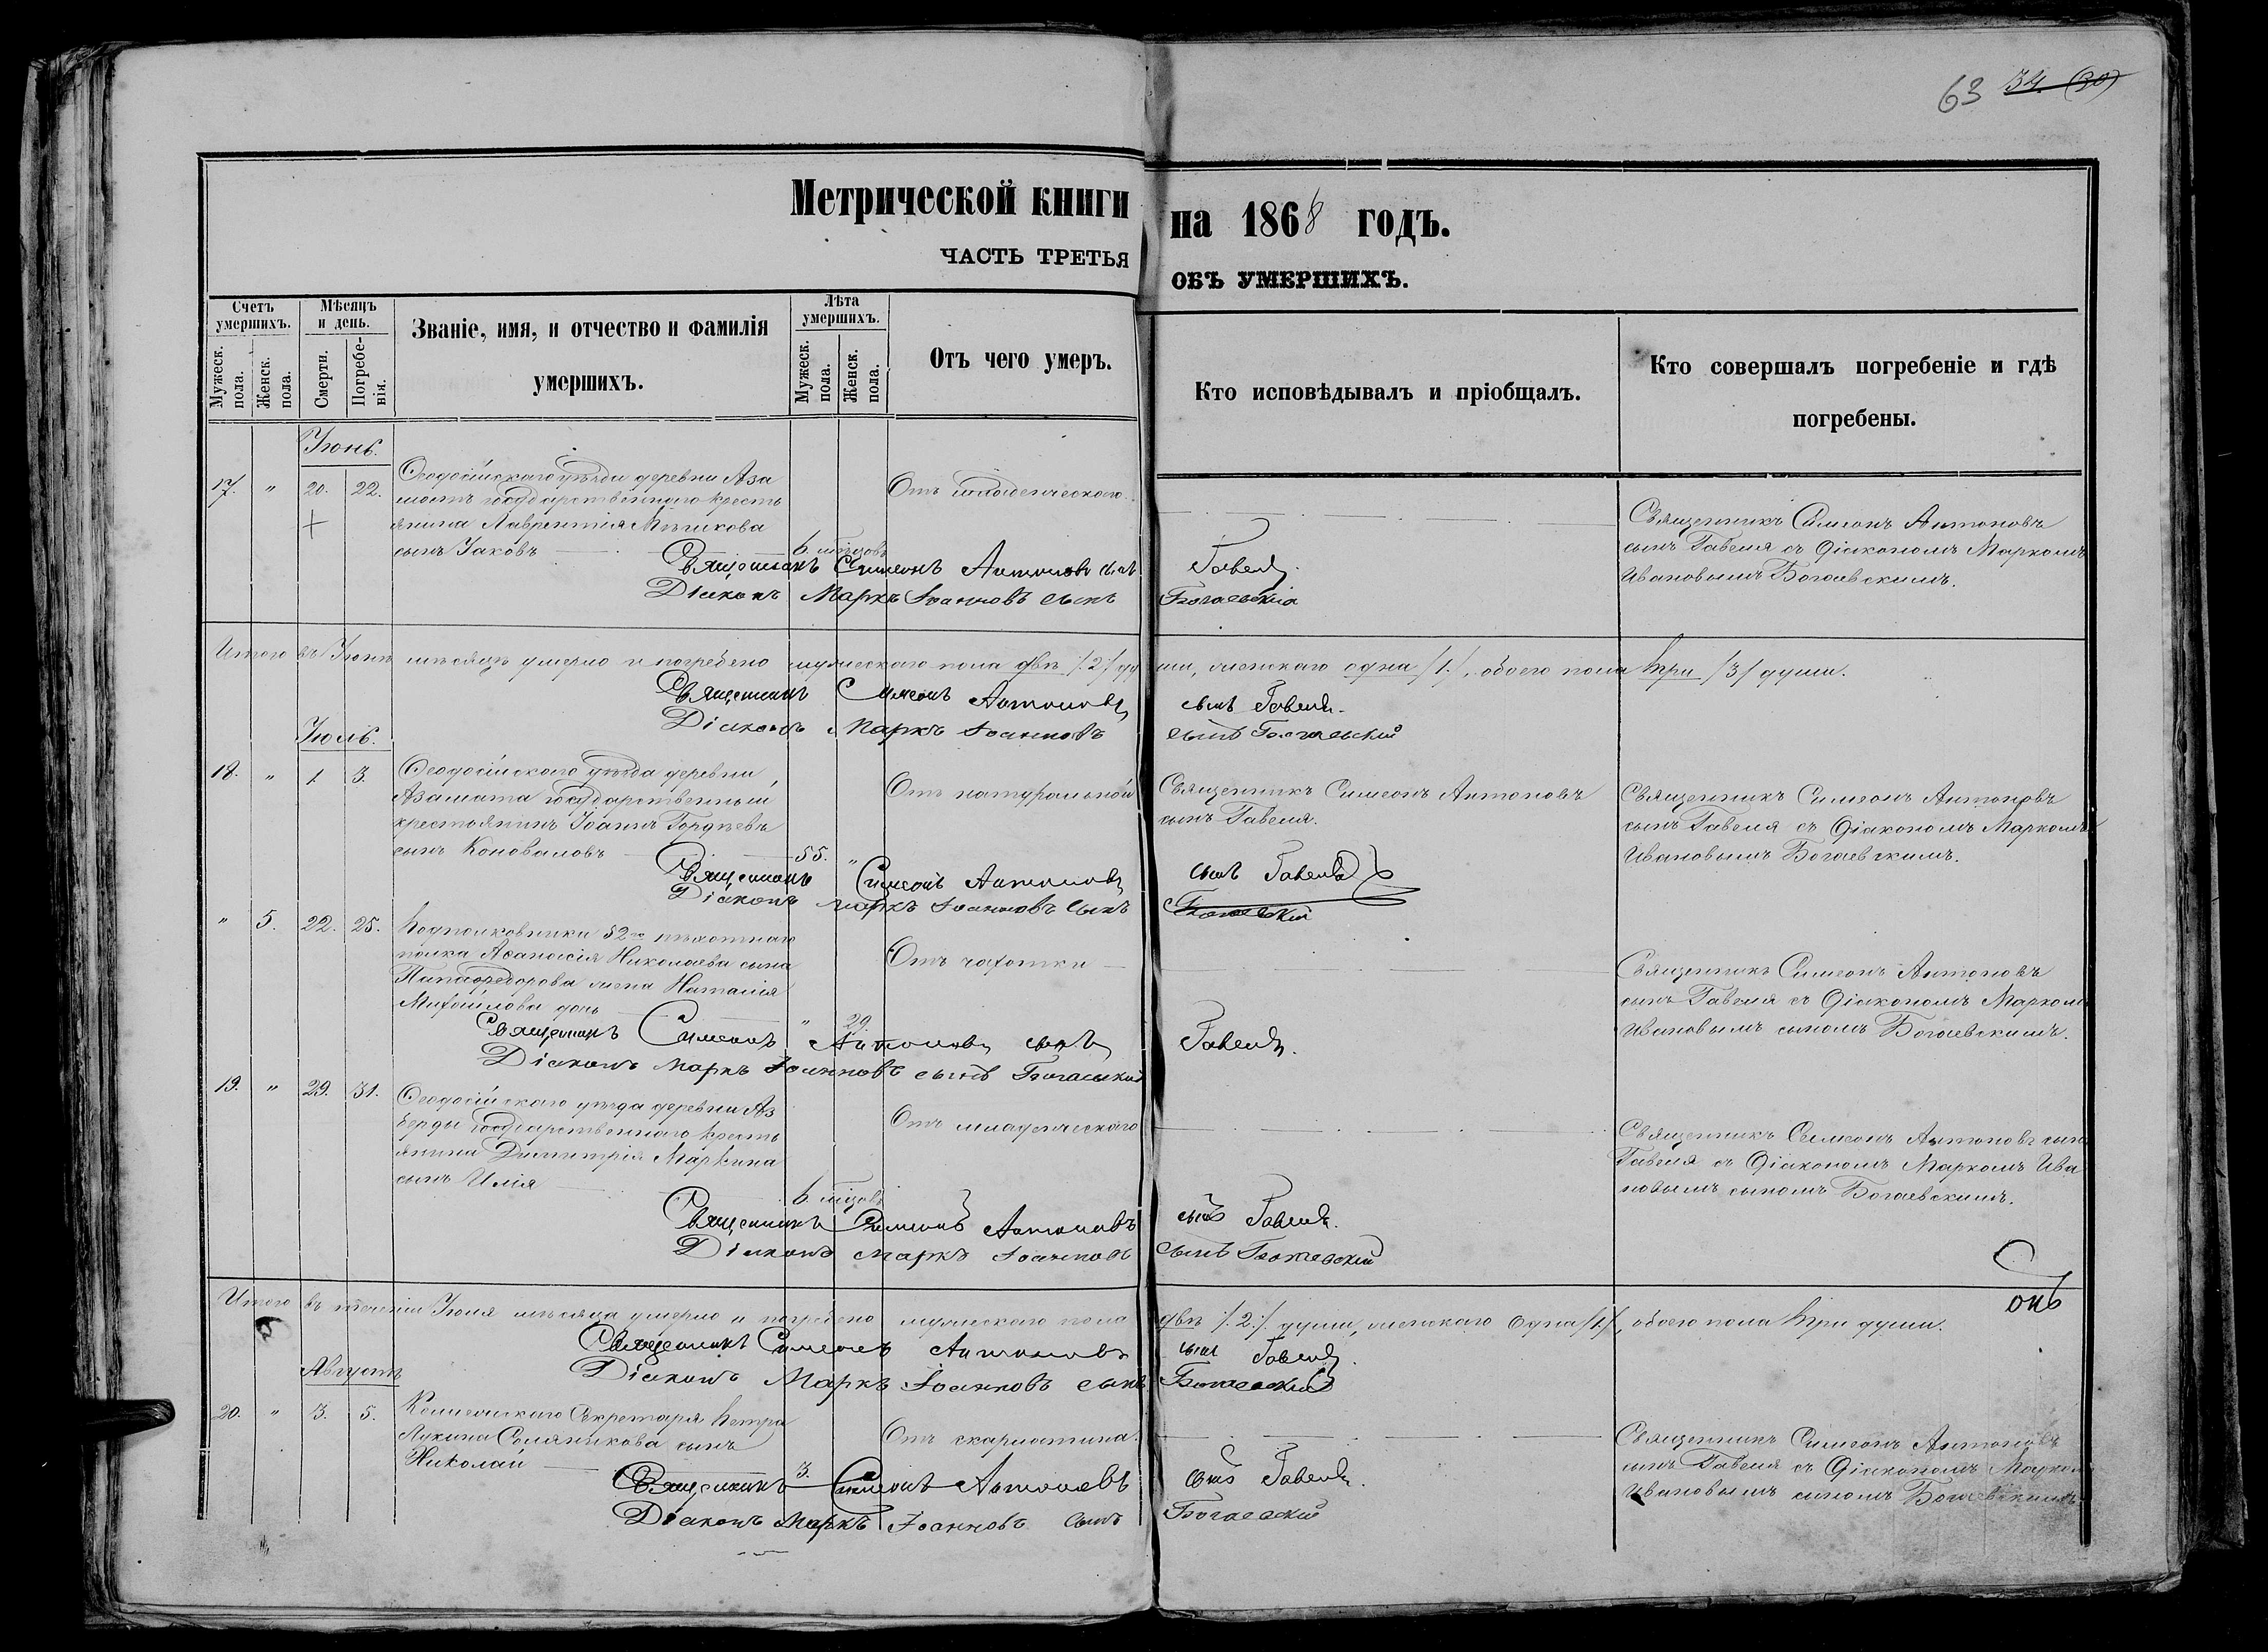 63 34. (30)
Метрической книги на 1868 годъ.
ЧАСТЬ ТРЕТЬЯ ОБЪ УМЕРШИХЪ.
Счетъ умершихъ.
Мужеск. пола.
Женск. пола.
Мѣсяцъ и день.
Смерти.
Погребенія.
Званіе, имя, и отчество и фамилія
умершихъ.
Лѣта умершихъ.
Мужеск. пола.
Женск. пола.
Отъ чего умеръ.
Кто исповѣдывалъ и пріобщалъ.
Кто совершалъ погребеніе и гдѣ
погребены.
Іюнь.
17. " 20. 22.
Ѳеодосійскаго уѣзда деревни Аза
матъ государственнаго кресть
янина Лаврентія
сынъ Іаковъ
6. мѣсцовъ
Отъ младенческаго
Священникъ Симеонъ Антоновъ
сынъ Гавеля съ Діакономъ Маркомъ
Ивановымъ Богаевскимъ.
Священникъ Симеонъ Антоновъ сынъ Гавеля.
Діаконъ Маркъ Іоанновъ сынъ Богаевскій
Итого въ Іюнѣ мѣсяцѣ умерло и погребено мужескаго пола двѣ /.2./ души, женскаго одна /1./, обоего пола три /3/ души.
Священникъ Симеонъ Антоновъ сынъ Гавеля.
Діаконъ Маркъ Іоанновъ сынъ Богаевскій
Іюль.
18. " 1 3.
Ѳеодосійскаго уѣзда деревни
Азамата государственный
крестьянинъ Іоаннъ Гордѣевъ
сынъ Коноваловъ
55. "
Отъ натуральной
Священникъ Симеонъ Антоновъ
сынъ Гавеля.
Священникъ Симеонъ Антоновъ
сынъ Гавеля съ Діакономъ Маркомъ
Ивановымъ Богаевскимъ.
Священникъ Симеонъ Антоновъ сынъ Гавеля
Діаконъ Маркъ Іоанновъ сынъ Богаевскій
" 5. 22. 25.
Подполковника 52го пѣхотнаго
полка Аѳанасія Николаева сына
Папаѳедорова жена Наталія
Михайлова дочь
" 29.
Отъ чахотки
Священникъ Симеонъ Антоновъ
сынъ Гавеля съ Діакономъ Маркомъ
Ивановымъ сыномъ Богаевскимъ.
Священникъ Симеонъ Антоновъ сынъ Гавеля.
Діаконъ Маркъ Іоанновъ сынъ Богаевскій
19. " 29. 31.
Ѳеодосійскаго уѣзда деревни Аз
берды государственнаго кресть
янина Димитрія Маркина
сынъ Илія
6. мѣсцовъ
Отъ младенческаго
Священникъ Симеонъ Антоновъ сынъ
Гавеля съ Діакономъ Маркомъ Ива
новымъ сыномъ Богаевскимъ.
Священникъ Симеонъ Антоновъ сынъ Гавеля.
Діаконъ Маркъ Іоанновъ сынъ Богаевскій
Итого въ теченіи Іюля мѣсяца умерло и погребено мужескаго пола двѣ /.2./. души, женскаго одна /1./, обоего пола три души.
Священникъ Симеонъ Антоновъ сынъ Гавеля.
Діаконъ Маркъ Іоанновъ сынъ Богаевскій
Августъ
20. " 3. 5.
Коллежскаго Секретаря Петра
Лукина Соляникова сынъ
Николай
3.
Отъ скарлатина.
Священникъ Симеонъ Антоновъ
сынъ Гавеля съ Діакономъ Маркомъ
Ивановымъ сыномъ Богаевскимъ
Священникъ Симеонъ Антоновъ сынъ Гавеля.
Діаконъ Маркъ Іоанновъ сынъ Богаевскій